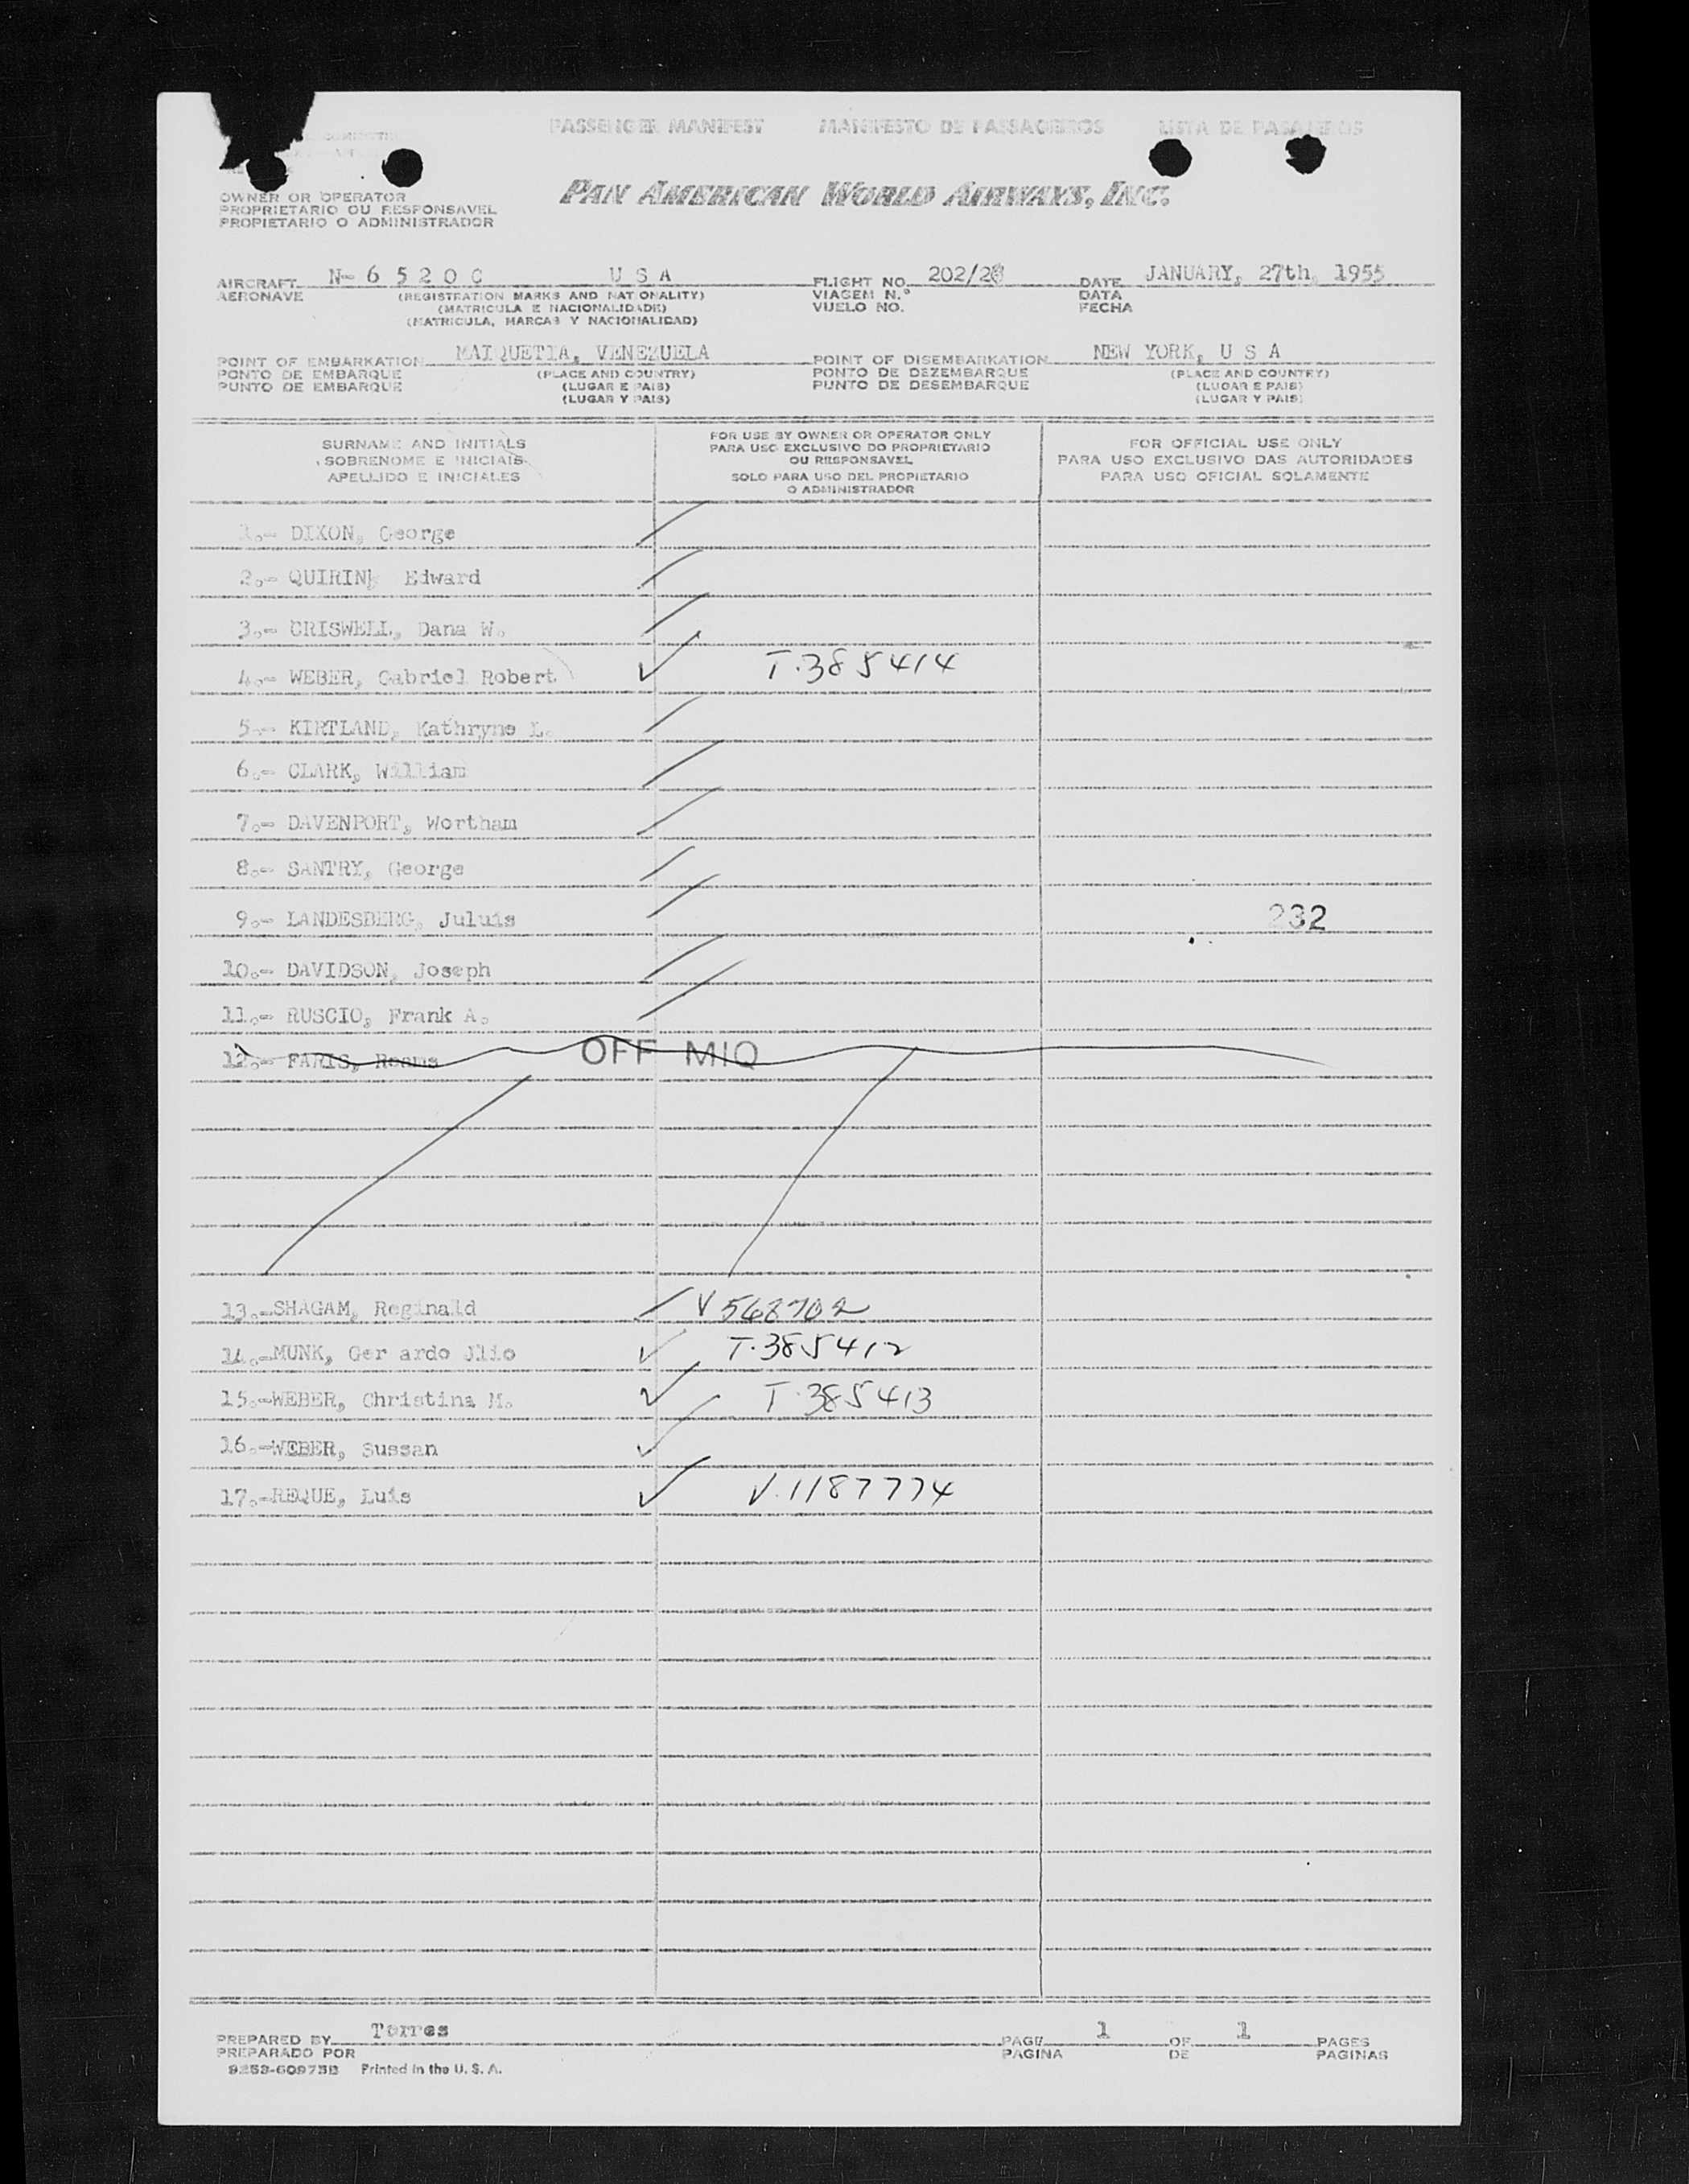 PASSENGER MANIFEST MANIFESTO DE PASSAGEIROS LISTA DE PASAJEROS
OWNER OR OPERATOR
PROPRIETARIO OU RESPONSAVEL
PROPIETARIO O ADMINISTRADOR
PAN AMERICAN WORLD AIRWAYS, INC.
AIRCRAFT N- 6 5 2 0 C U S A FLIGHT NO. 202/26 DATE JANUARY, 27th, 1955
AERONAVE (REGISTRATION MARKS AND NATIONALITY) VIAGEM N.º DATA
(MATRICULA E NACIONALIDADE) VUELO NO. FECHA
(MATRICULA, MARCAS Y NACIONALIDAD)
POINT OF EMBARKATION MAIQUETIA, VENEZUELA POINT OF DISEMBARKATION NEW YORK, U S A
PONTO DE EMBARQUE (PLACE AND COUNTRY) PONTO DE DEZEMBARQUE (PLACE AND COUNTRY)
PUNTO DE EMBARQUE (LUGAR E PAIS) PUNTO DE DESEMBARQUE (LUGAR E PAIS)
(LUGAR Y PAIS) (LUGAR Y PAIS)
SURNAME AND INITIALS
SOBRENOME E INICIAIS
APELLIDO E INICIALES
FOR USE BY OWNER OR OPERATOR ONLY
PARA USO EXCLUSIVO DO PROPRIETARIO
OU RESPONSAVEL
SOLO PARA USO DEL PROPIETARIO
O ADMINISTRADOR
FOR OFFICIAL USE ONLY
PARA USO EXCLUSIVO DAS AUTORIDADES
PARA USO OFICIAL SOLAMENTE
1.- DIXON, George
2.- QUIRIN, Edward
3.- CRISWELL, Dana W.
4.- WEBER, Gabriel Robert T.385414
5.- KIRTLAND, Kathryne L.
6.- CLARK, William
7.- DAVENPORT, Wortham
8.- SANTRY, George
9.- LANDESBERG, Juluis 232
10.- DAVIDSON, Joseph
11.- RUSCIO, Frank A.
12.- FARIS, OFF MIQ
13.-SHAGAM, Reginald V 568702
14.-MUNK, Ger ardo Jlio T.385412
15.-WEBER, Christina M. T.385413
16.-WEBER, Sussan
17.-REQUE, Luis V.1187774
PREPARED BY Torres PAGE 1 OF 1 PAGES
PREPARADO POR PAGINA DE PAGINAS
9253-60975B Printed in the U. S. A.